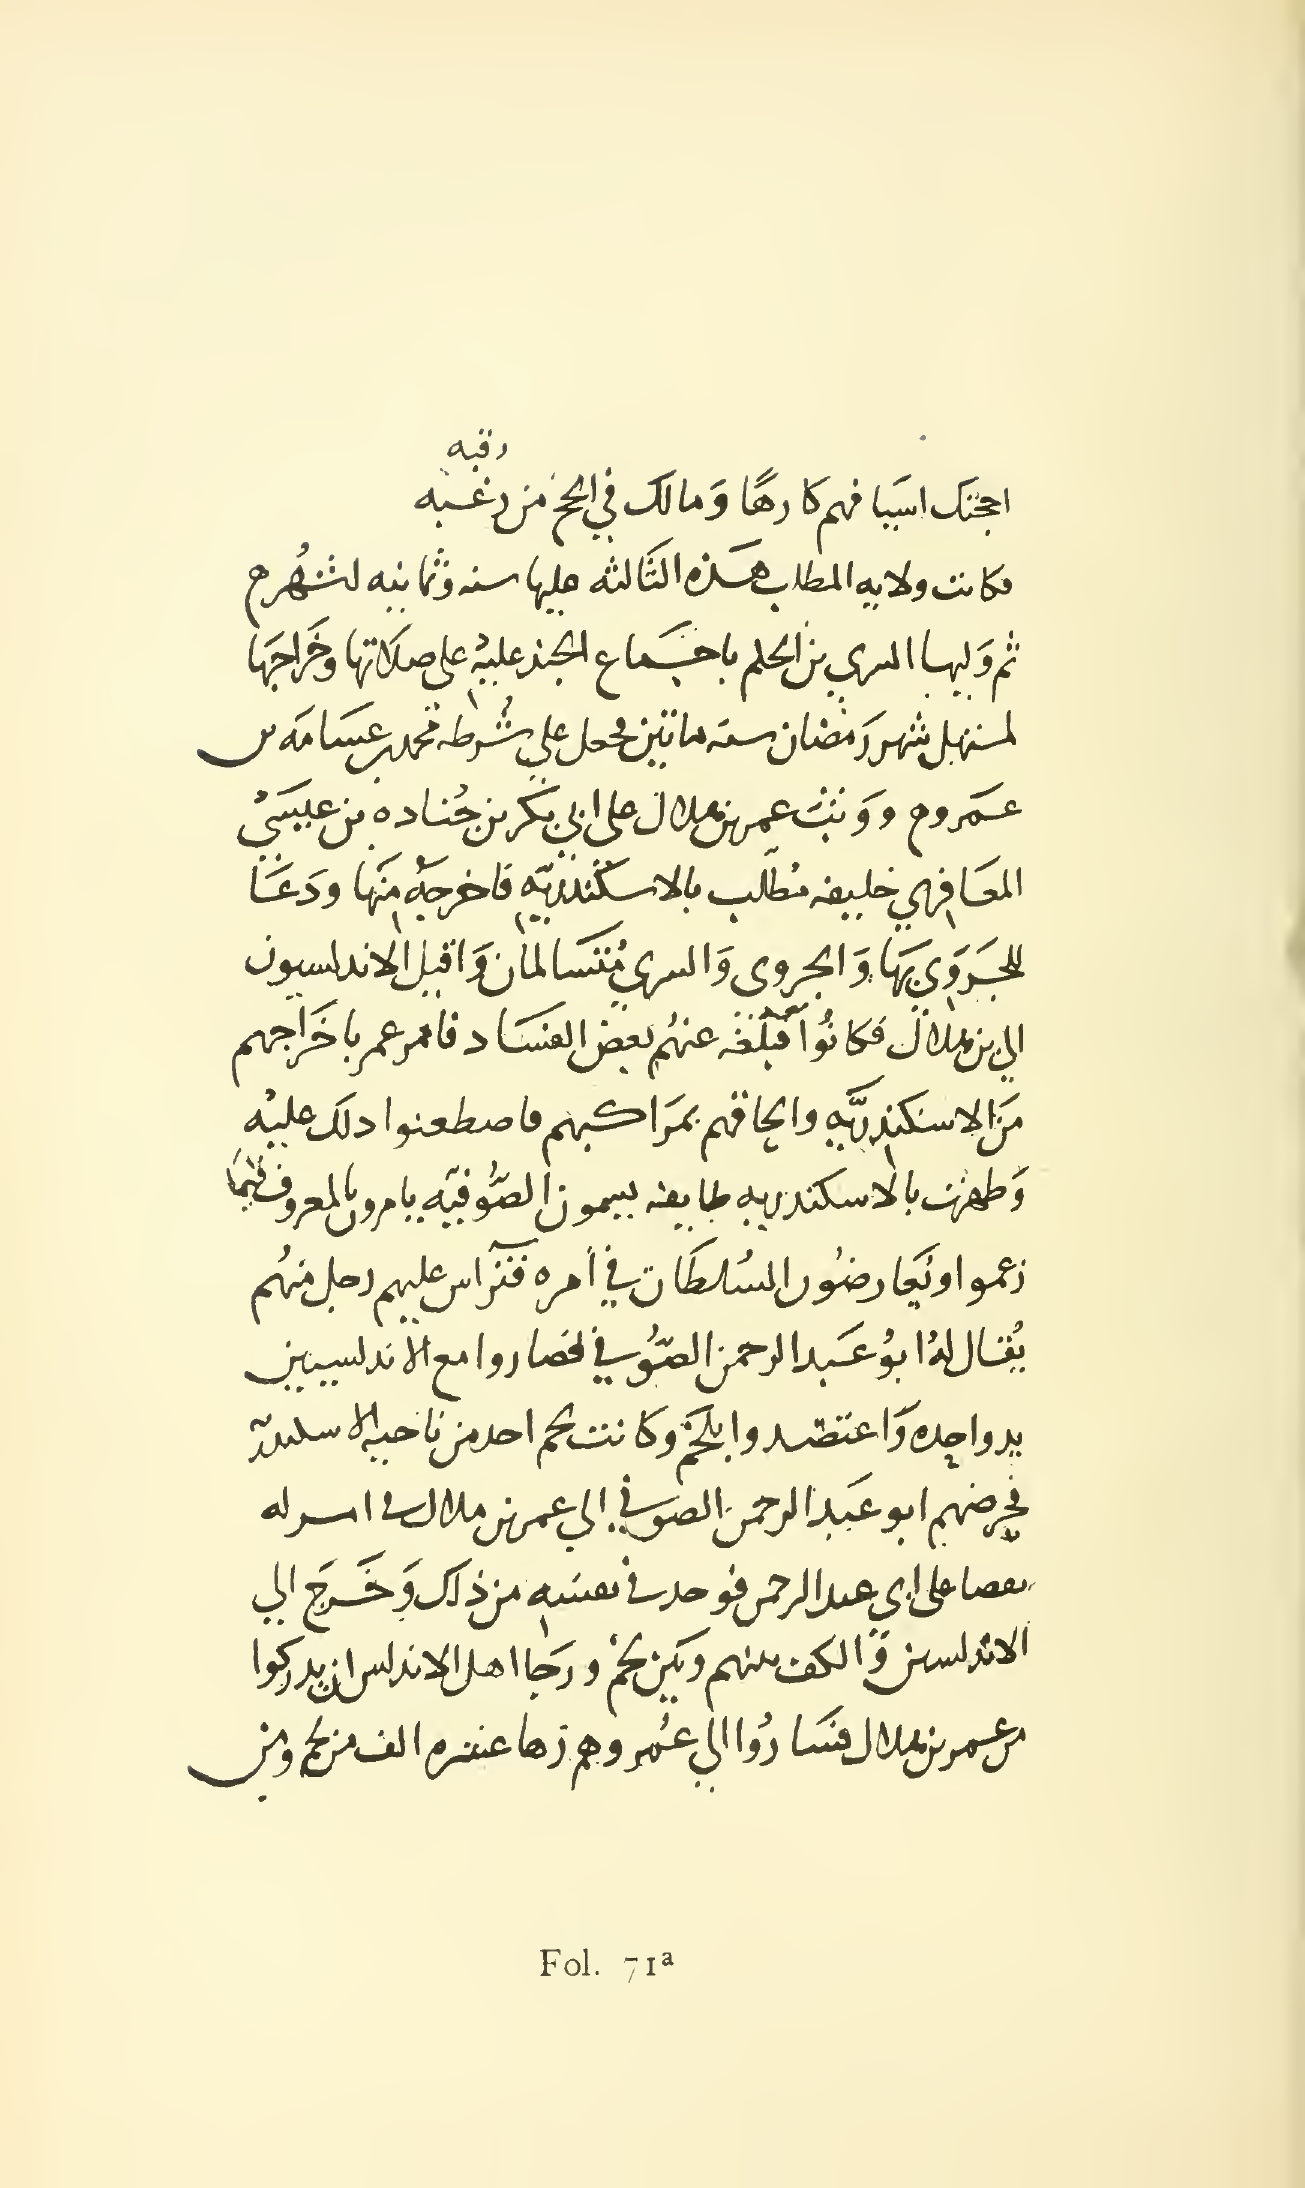 رقبه
اجتنك اسيافهم كارهًا وَمالك في الحج من رغبه
فكانت ولايه المطلب هذه الثالثه عليها سنه وثمانيه اشهر ح
ثم وَليها السري بن الحكم باجتماع الجند عليه على صلاتها وخَراجَها
لمستهل شهر رَمضان سنه مائتين فجعل علي شُرطه محمد بن عسَامَه بن
عَمرو ح ووَثبَ عمر بن ملال على ابي بكر بن جُناده بن عيسَي
المعَافري خليفه مُطلب بالاسكندريّه فاخرجهُ منَها ودَعَا
للجَرَوَي بهَا وَالجروى وَالسري مُتسَالمان وَاقبل الاندلسيون
الي بن ملال فكانُوا معه فبلغه عنهُم بعض الفسَاد فامر عمر باخَراجهم
منَ الاسكندريّه والحاقهم بمرَاكبهم فاصطغنوا دلك عليْه
وَظهرت بالاسكندريه طايفه يسمون الصُّوفيّه يامرون بالمعروف فيمَا
زعموا ويُعارضُون السُلطَان في أمره فتراس عليهم رجل منهُم
يُقال لهُ ابوُ عَبد الرحمن الصُّوفي فصاروا مع الاندلسيين
يد واحده وَاعتضدوا بلخم وكانت لخم احد من ناحيه الاسكندريّه
فخرضهم ابو عَبد الرحمن الصوفي الي عمر بن ملال في امر له
بقصا على ابي عبد الرحمن فوجد في نفسه من ذلك وَخَرجَ الي
الاندلسين وَالف بينهم وبين لخم ورجَا اهل الاندلس ان يدركوا
من عمر بن ملال فسَارُوا الي عُمر وهم زها عشره الف من لخم ومن
Fol. 71ª